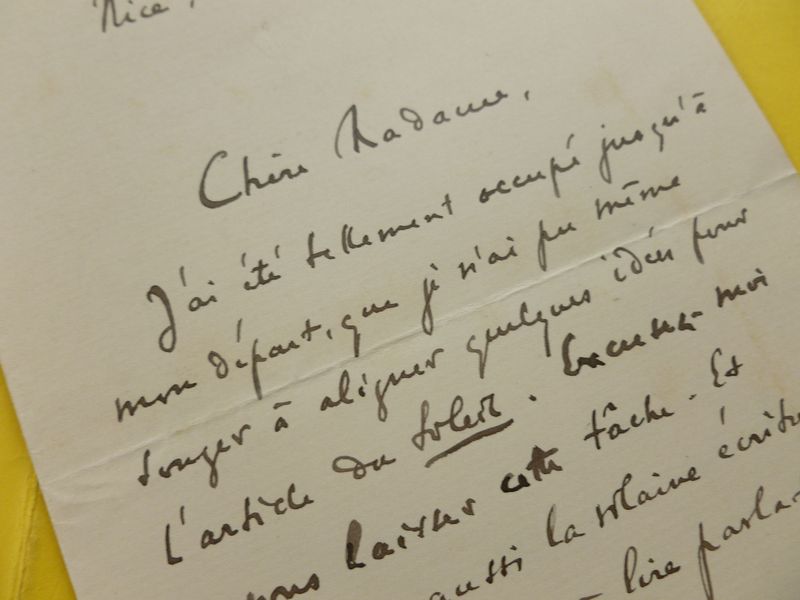 Nice,
Chère Madame,
J'ai été tellement occupé jusqu'à
mon départ, que je n'ai pu même
songer à aligner quelques idées pour
l'article du Soleil. Excusez-moi
vous laisser cette tâche. Et
aussi la vilaine écritu
lire parla-